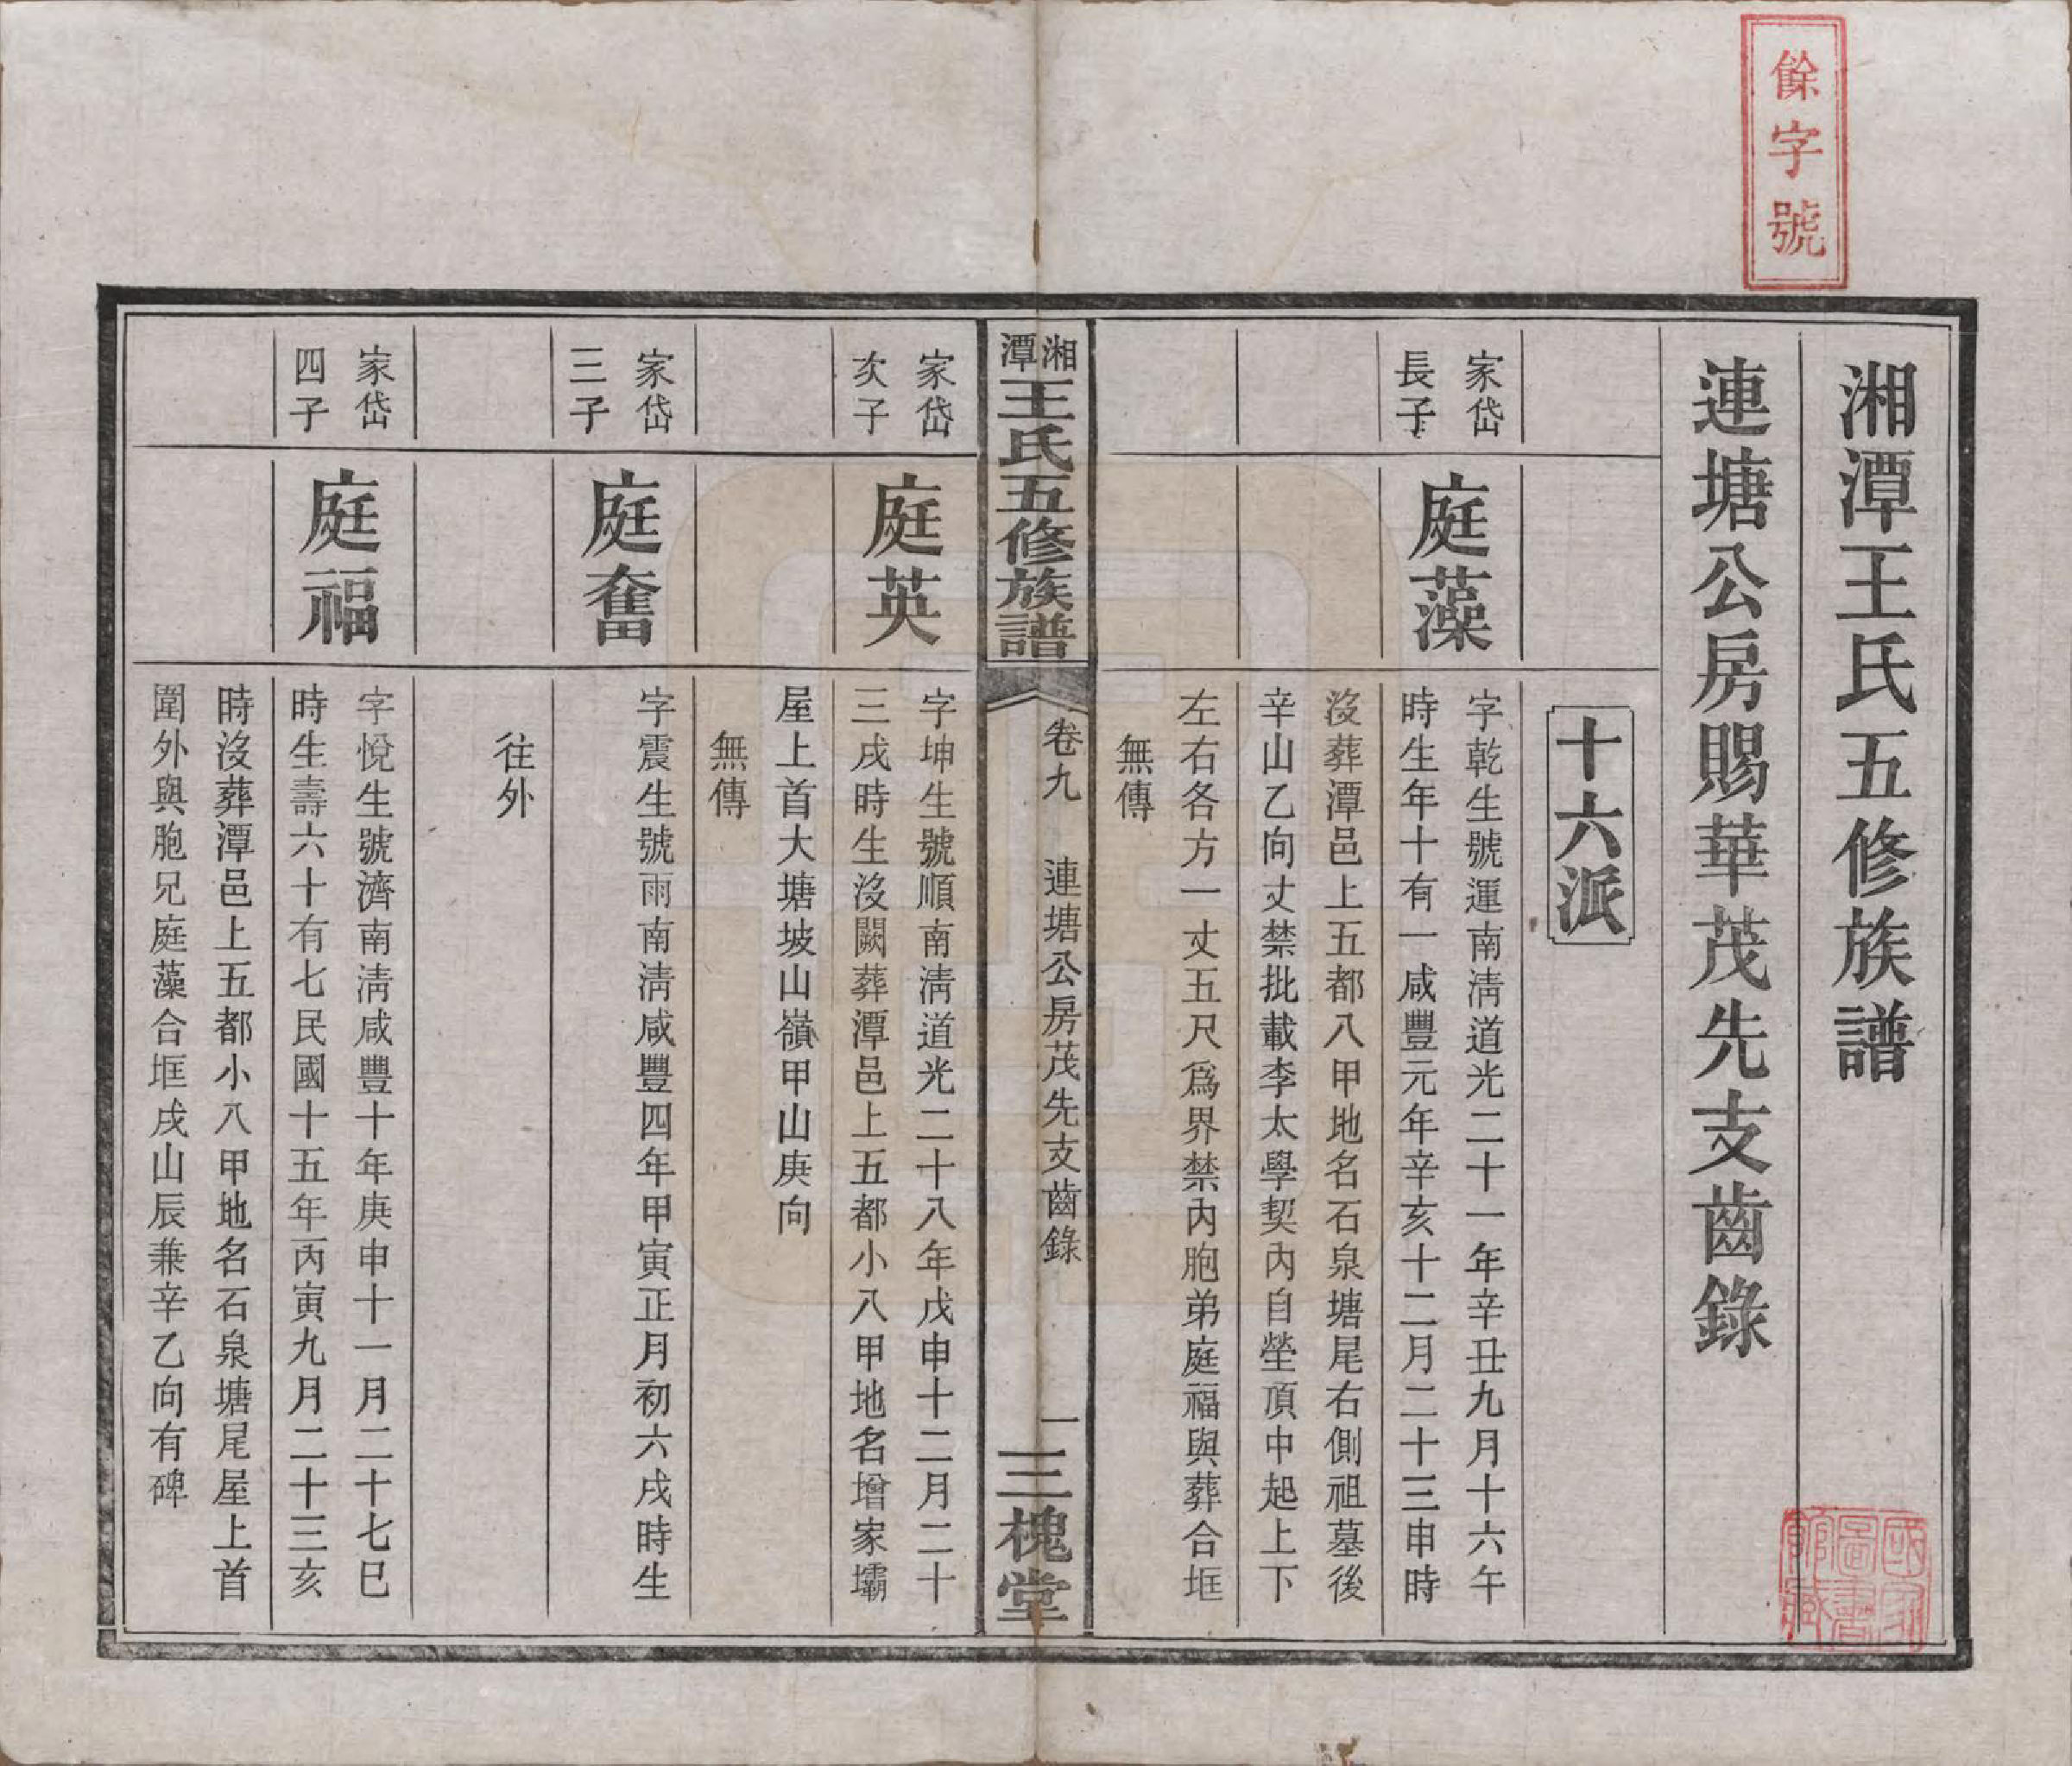 餘字號
湘潭王氏五修族譜
連塘公房賜華茂先支齒錄
十六派
家岱
長子
庭藻
字乾生號運南淸道光二十一年辛丑九月十六午
時生年十有一咸豐元年辛亥十二月二十三申時
沒葬潭邑上五都八甲地名石泉塘尾右側祖墓後
辛山乙向丈禁批載李太學契內自塋頂中起上下
左右各方一丈五尺爲界禁內胞弟庭福與葬合框
無傳
湘潭
王氏五修族譜
卷九
連塘公房茂先支齒錄
一
三槐堂
家岱
次子
庭英
字坤生號順南淸道光二十八年戊申十二月二十
三戌時生沒闕葬潭邑上五都小八甲地名增家壩
屋上首大塘坡山嶺甲山庚向
無傳
家岱
三子
庭奮
字震生號雨南淸咸豐四年甲寅正月初六戌時生
往外
家岱
四子
庭福
字悅生號濟南淸咸豐十年庚申十一月二十七巳
時生壽六十有七民國十五年丙寅九月二十三亥
時沒葬潭邑上五都小八甲地名石泉塘尾屋上首
圍外與胞兄庭藻合框戌山辰兼辛乙向有碑
國家
圖書
館藏